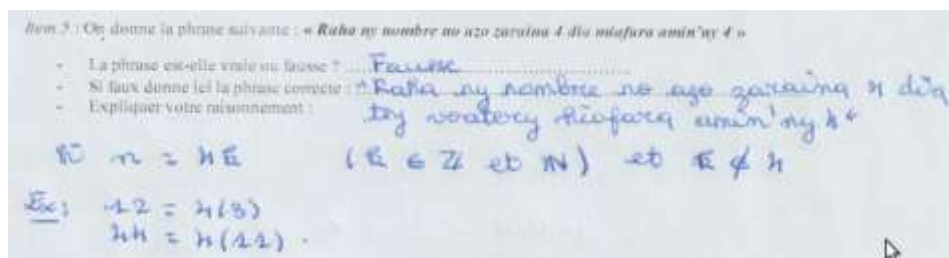 Item 5 : On donne la phrase suivante : « Raha ny nombre no azo zaraina 4 dia miafara amin'ny 4 »
- La phrase est-elle vraie ou fausse ? Fausse
- Si faux donne ici la phrase correcte : " Raha ny nombre no azo zaraina 4 dia
- Expliquer votre raisonnement : tsy voatery hiafara amin'ny 4 "
Si n = 4k (k ∈ ℤ et ℕ) et k ∉ 4
Ex: 12 = 4(3)
44 = 4(11).